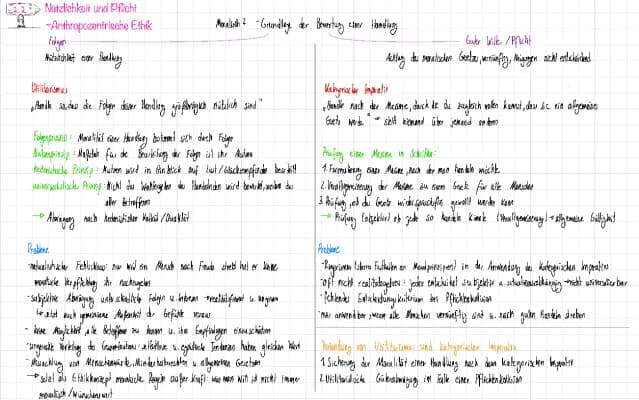 Nützlichkeit und Pflicht
-Anthropozentrische Ethik
Moralisch? - Grundlage der Bewertung einer Handlung
Folgen
Nützlichkeit einer Handlung
Guter Wille / Pflicht
Achtung des moralischen Gesetzes, vernünftig, Neigungen nicht entscheidend
Utilitarismus
„Handle so, dass die Folgen deiner Handlung größtmöglich nützlich sind"
Folgenprinzip: Moralität einer Handlung bestimmt sich durch Folgen
Nutzenprinzip: Maßstab für die Beurteilung der Folgen ist ihr Nutzen
hedonistische Prinzip: Nutzen wird in Hinblick auf Lust/Glücksempfinden beurteilt
universalistische Prinzip: Nicht das Wohlergehen des Handelnden wird bewertet, sondern das
aller Betroffenen
→ Abwägung nach hedonistischen Kalkül/Qualität
Probleme
naturalistischer Fehlschluss: nur weil ein Mensch nach Freude strebt hat er keine
moralische Verpflichtung ihr nachzugehen
- subjektive Abwägung unterschiedliche Folgen und Interessen
- keine Möglichkeit, alle Betroffene zu kennen und ihre Empfindungen einzuschätzen
- Missachtung von Menschenwürde, Minderheitsrechten und allgemeinen Gesetzen
→ setzt als Ethikkonzept moralische Regeln außer Kraft: was man will ist nicht immer
moralisch/wünschenswert
Kategorischer Imperativ
„Handle nach der Maxime, durch die du zugleich wollen kannst, dass sie ein allgemeines
Gesetz werde" → stellt niemand über jemand anderen
Prüfung einer Maxime in Schritten:
1. Formulierung einer Maxime, nach der man handeln möchte
2. Verallgemeinerung der Maxime zu einem Gesetz für alle Menschen
3. Prüfung, ob das Gesetz widerspruchsfrei gewollt werden kann
→ Prüfung (objektiv) ob jede so handeln könnte (Verallgemeinerung) → allgemeine Gültigkeit
Probleme
- Rigorismus (starres Festhalten an Moralprinzipien) in der Anwendung des kategorischen Imperativs
- oft nicht realitätsbezogen: jeder entscheidet subjektiv und situationsabhängig → nicht universalisierbar
- fehlendes Entscheidungskriterium bei Pflichtkollision
- nur anwendbar, wenn alle Menschen vernünftig sind und nach guten Handeln streben
Verbindung von Utilitarismus und kategorischen Imperativ
1. Sicherung der Moralität einer Handlung nach dem kategorischen Imperativ
2. Utilitaristische Güterabwägung im Falle einer Pflichtenkollision